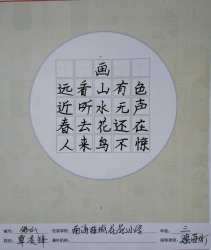 画
远看山有色
近听水无声
春去花还在
人来鸟不惊
城市: 佛山 在读学校: 南海桂城花苑小学 年级: 三
姓名: 课外机构: 指导老师: